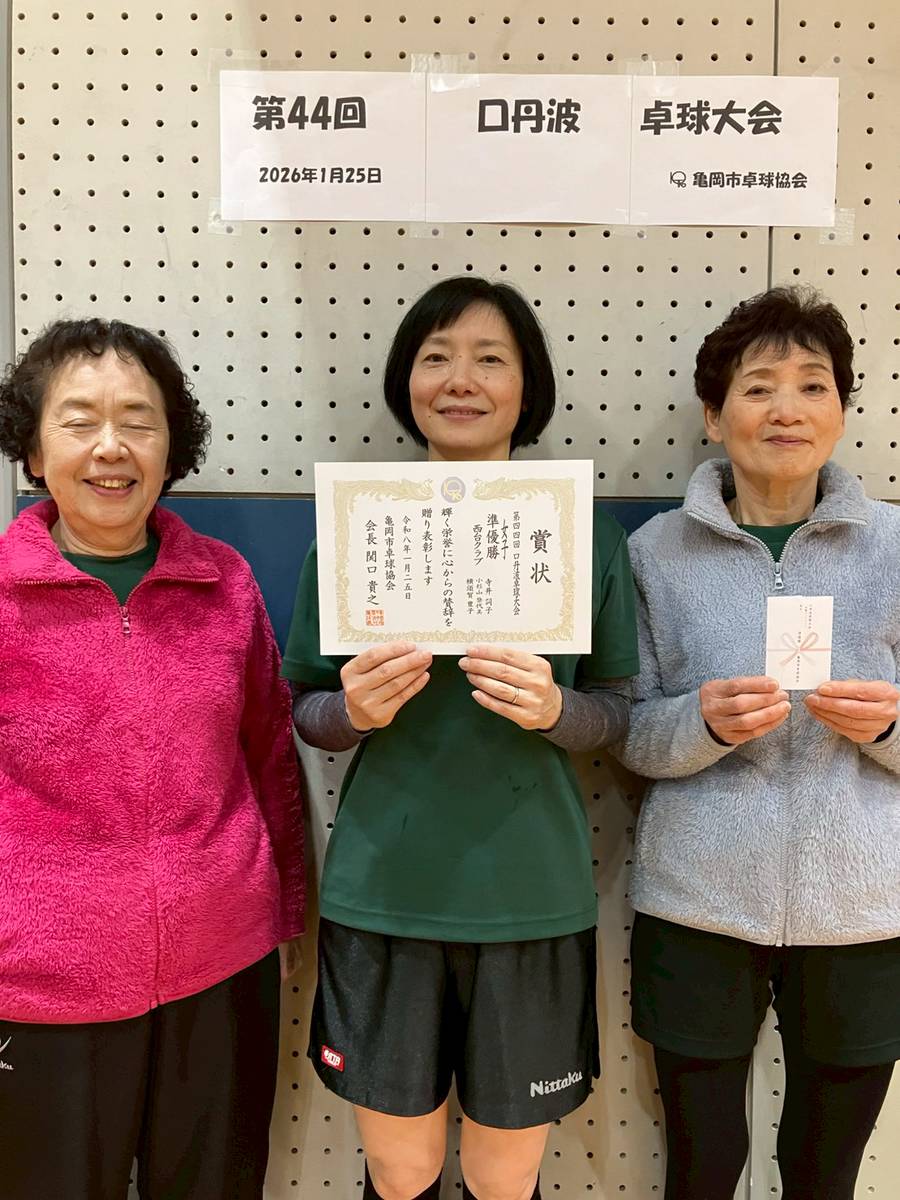 第44回
口丹波
卓球大会
2026年1月25日
亀岡市卓球協会
賞状
第四四回 口丹波卓球大会
準優勝
西台クラブ
輝く栄誉に心からの賛辞を
贈り表彰します
令和八年一月二五日
亀岡市卓球協会
会長 関口 貴之
Nittaku